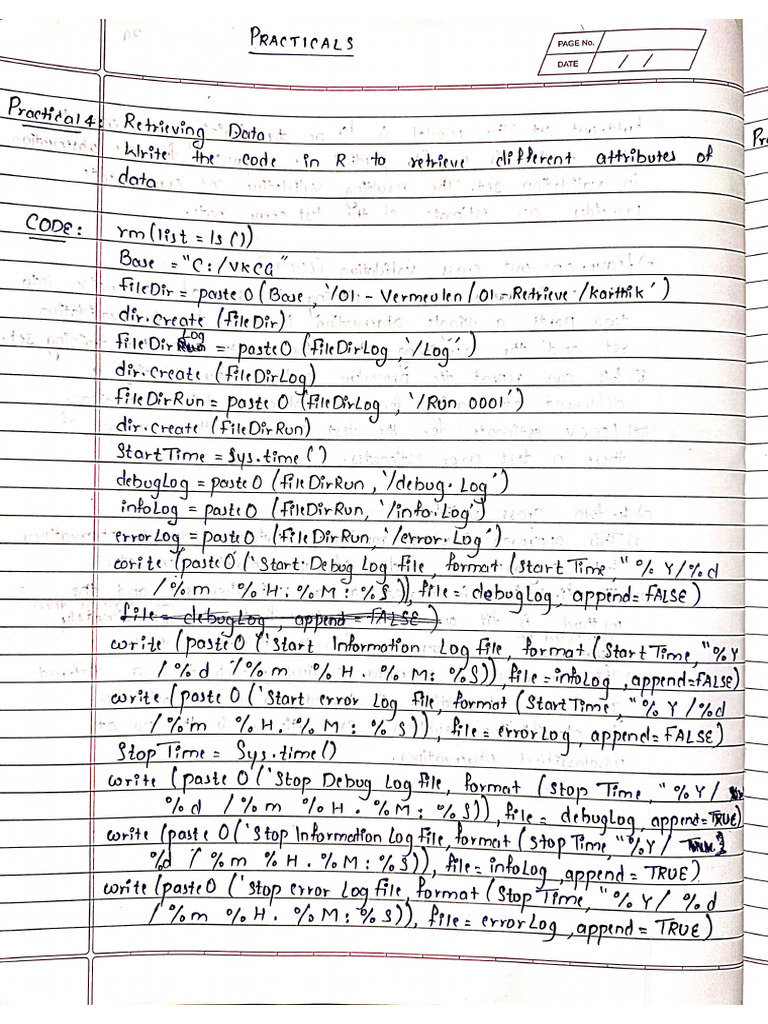 PRACTICALS
PAGE No.
DATE / /
Practical 4: Retrieving Data
Write the code in R to retrieve different attributes of
data
CODE: rm(list = ls())
Base = "C:/VKCG"
fileDir = paste0(Base, '/01-Vermeulen/01-Retrieve/Karthik')
dir.create (fileDir)
fileDirLog = paste0 (fileDirLog, '/Log')
dir.create (fileDirLog)
fileDirRun = paste0 (fileDirLog, '/Run 0001')
dir.create (fileDirRun)
StartTime = Sys.time()
debugLog = paste0 (fileDirRun, '/debug.Log')
infoLog = paste0 (fileDirRun, '/info.Log')
errorLog = paste0 (fileDirRun, '/error.Log')
write (paste0 ('Start Debug Log file, format (Start Time, "%Y/%d
/%m %H.%M:%S)), file = debugLog, append=FALSE)
file = debugLog, append = FALSE)
write (paste0 ('Start Information Log file, format (Start Time, "%Y
/%d /%m %H.%M:%S)), file = infoLog, append=FALSE)
write (paste0 ('Start error Log file, format (Start Time, "%Y/%d
/%m %H.%M:%S)), file = errorLog, append = FALSE)
Stop Time = Sys.time()
write (paste0 ('Stop Debug Log file, format (Stop Time, "%Y/
%d /%m %H.%M:%S)), file = debugLog, append=TRUE)
write (paste0 ('Stop Information Log file, format (Stop Time, "%Y/
%d /%m %H.%M:%S)), file = infoLog, append = TRUE)
write (paste0 ('Stop error Log file, format (Stop Time, "%Y/%d
/%m %H.%M:%S)), file = errorLog, append = TRUE)